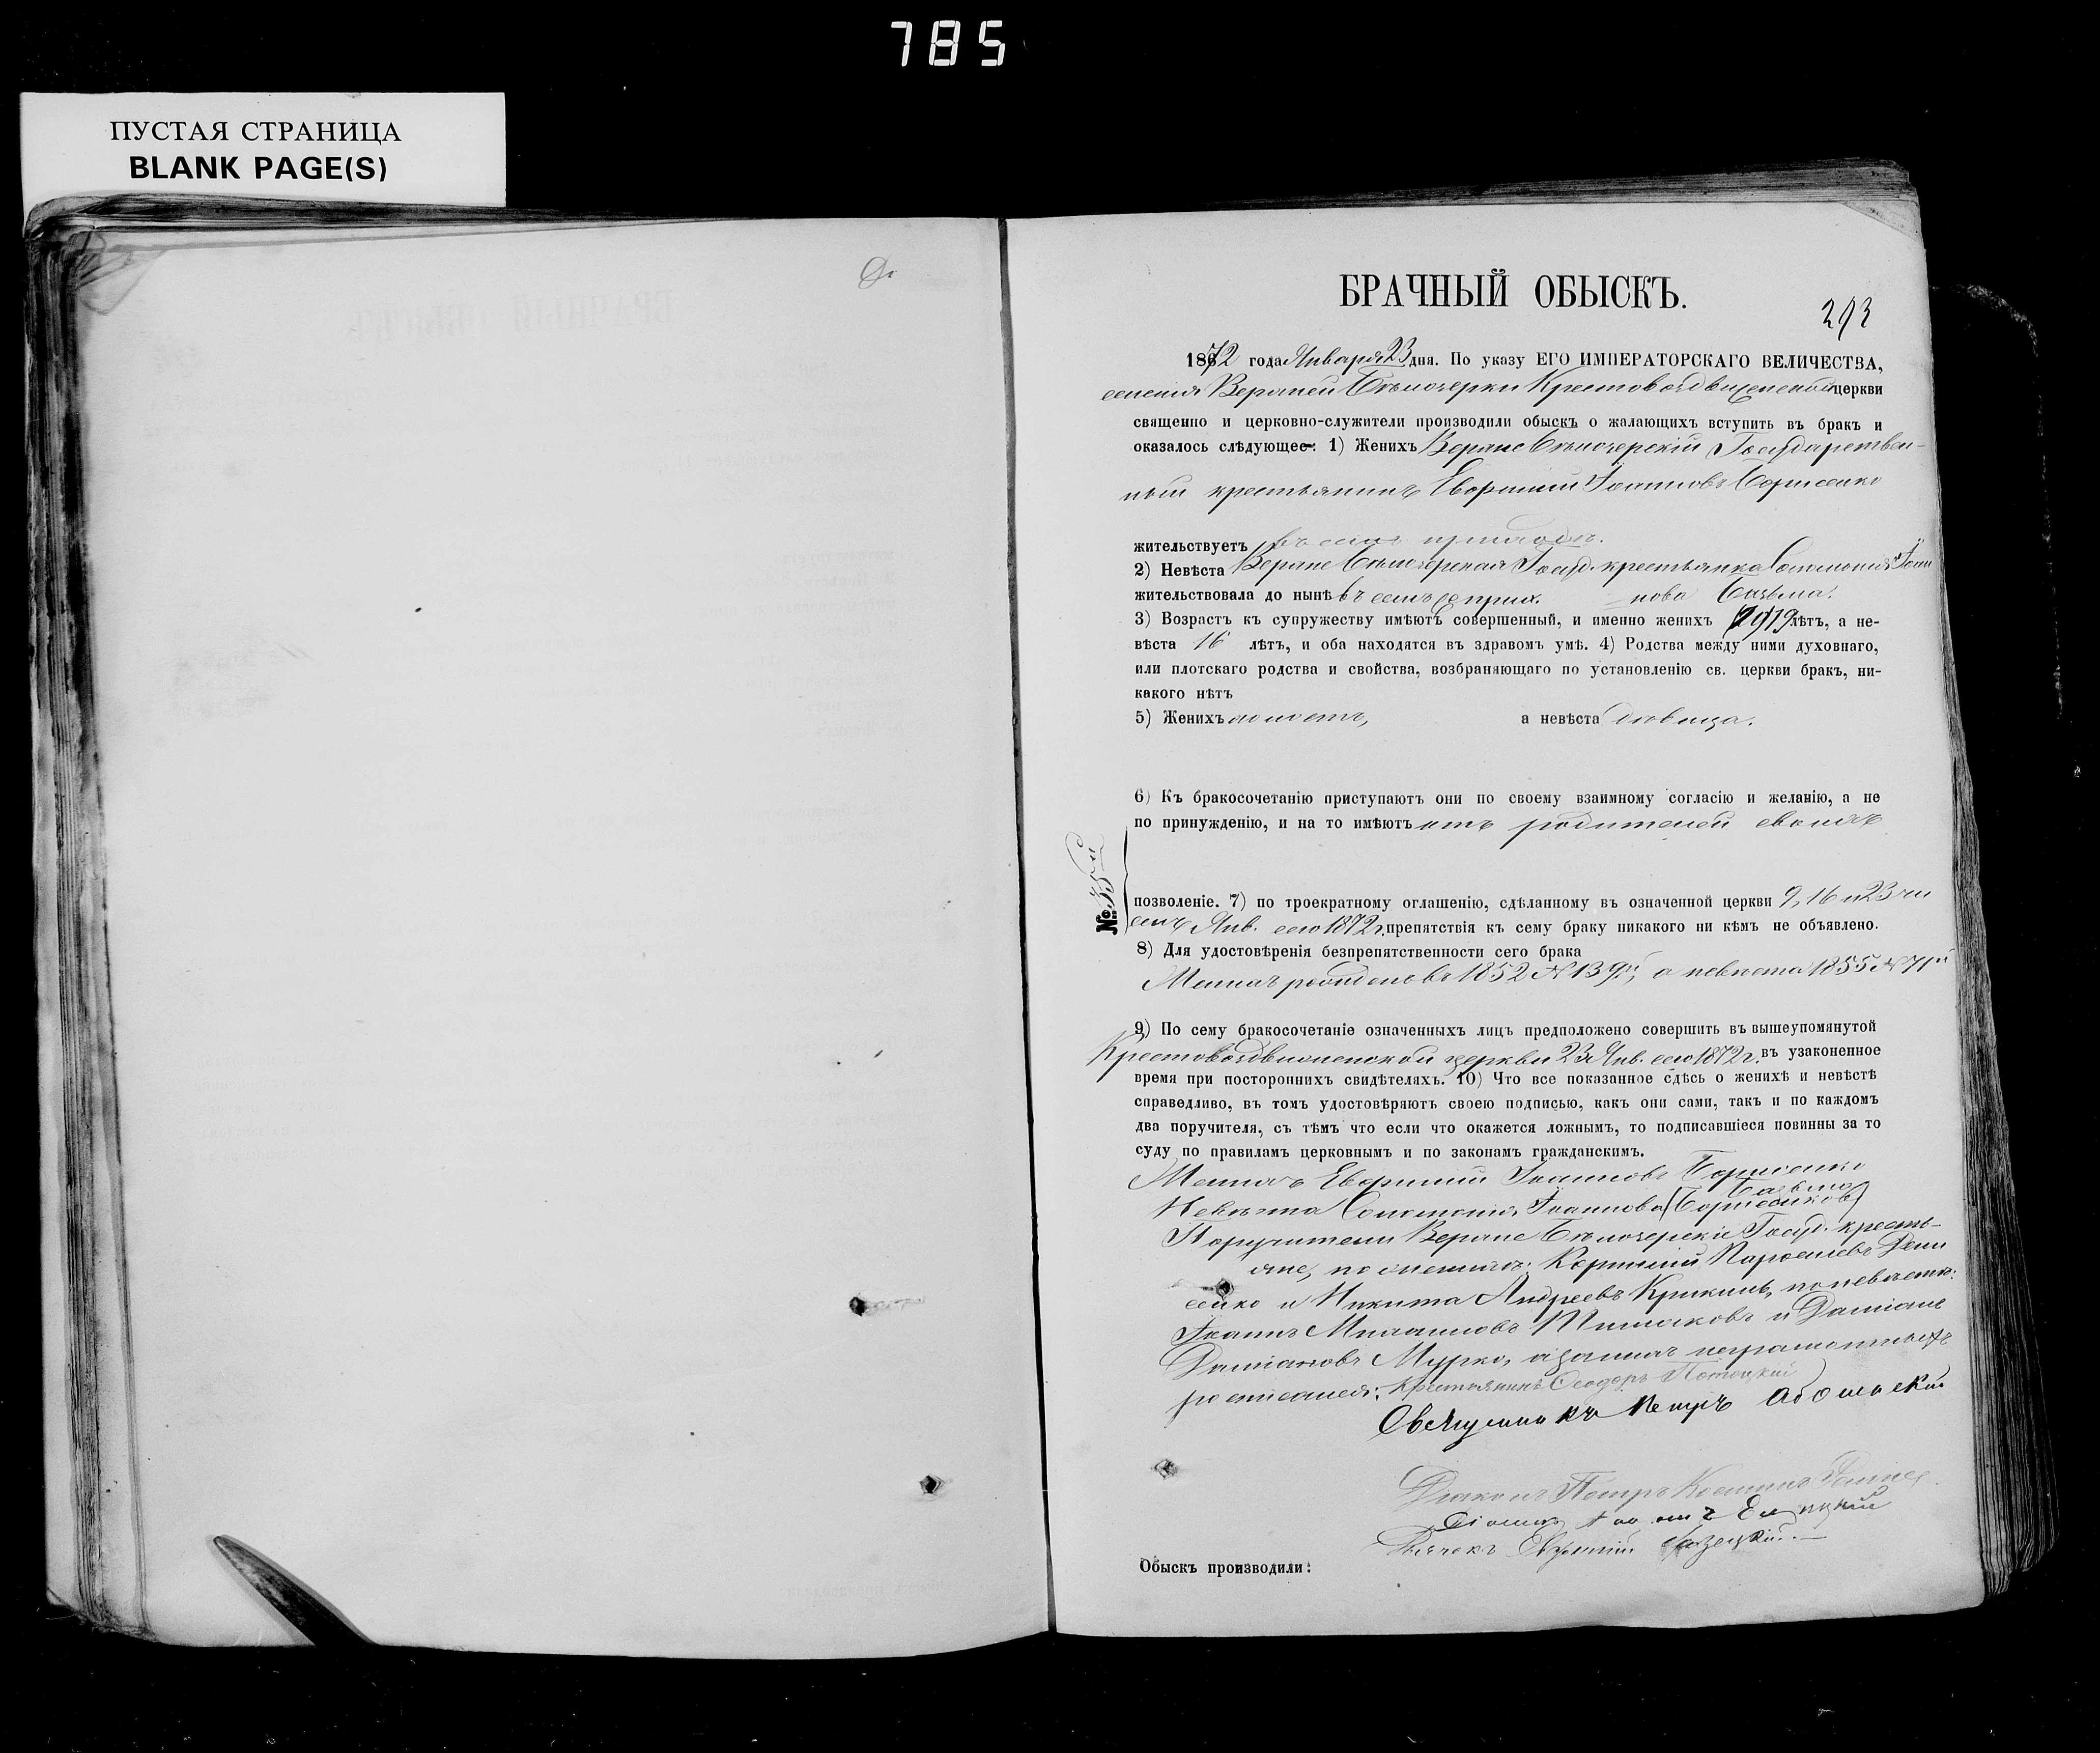 785
ПУСТАЯ СТРАНИЦА
BLANK PAGE(S)
БРАЧНЫЙ ОБЫСКЪ.
293
1872 года Января 23 дня. По указу ЕГО ИМПЕРАТОРСКАГО ВЕЛИЧЕСТВА,
селенія Верхней Бѣлозерки Крестовоздвиженской церкви
священно и церковно-служители производили обыскъ о жалающихъ вступить въ бракъ и
оказалось слѣдующее: 1) Женихъ Верхне Бѣлозерскій Государствен-
ный крестьянинъ Евфимій Іоанновъ Борисенко
жительствуетъ въ семъ приходѣ.
2) Невѣста Верхне Бѣлозерская Госуд. крестьянка Соломонія Іоан
жительствовала до нынѣ въ семъ же прих. нова
3) Возрастъ къ супружеству имѣютъ совершенный, и именно женихъ 19 лѣтъ, а не-
вѣста 16 лѣтъ, и оба находятся въ здравомъ умѣ. 4) Родства между ними духовнаго,
или плотскаго родства и свойства, возбраняющаго по установленію св. церкви бракъ, ни-
какого нѣтъ
5) Женихъ холостъ, а невѣста дѣвица.
6) Къ бракосочетанію приступаютъ они по своему взаимному согласію и желанію, а не
по принужденію, и на то имѣютъ отъ родителей своихъ
№
позволеніе. 7) по троекратному оглашенію, сдѣланному въ означенной церкви 9, 16 и 23 чи
слъ Янв. сего 1872 г. препятствія къ сему браку никакого ни кѣмъ не объявлено.
8) Для удостовѣренія безпрепятственности сего брака
Женихъ рожденъ въ 1852 № 139й, а невѣста 1855 № 71й
9) По сему бракосочетаніе означенныхъ лицъ предположено совершить въ вышеупомянутой
Крестовоздвиженской церкви 23 Янв. сего 1872 г. въ узаконенное
время при постороннихъ свидѣтеляхъ. 10) Что все показанное сдѣсь о женихѣ и невѣстѣ
справедливо, въ томъ удостовѣряютъ своею подписью, какъ они сами, такъ и по каждомъ
два поручителя, съ тѣмъ что если что окажется ложнымъ, то подписавшіеся повинны за то
суду по правиламъ церковнымъ и по законамъ гражданскимъ.
Женихъ Евфимій Іоанновъ Борисенко
Невѣста Соломонія Іоаннова
Поручители Верхне Бѣлозерскіе Госуд. кресть-
яне, по женихѣ: Корнилій Парфеніевъ Дени
сенко и Никита Андреевъ Крикунъ, по невѣстѣ:
Іоаннъ Михаиловъ и Даміанъ
Даміановъ Мурко, а за нихъ неграмотныхъ
росписался: Крестьянинъ Ѳеодоръ Потоцкій
Священникъ Петръ
Діаконъ Петръ Константиновъ
Дьячекъ Евфимій
Обыскъ производили: